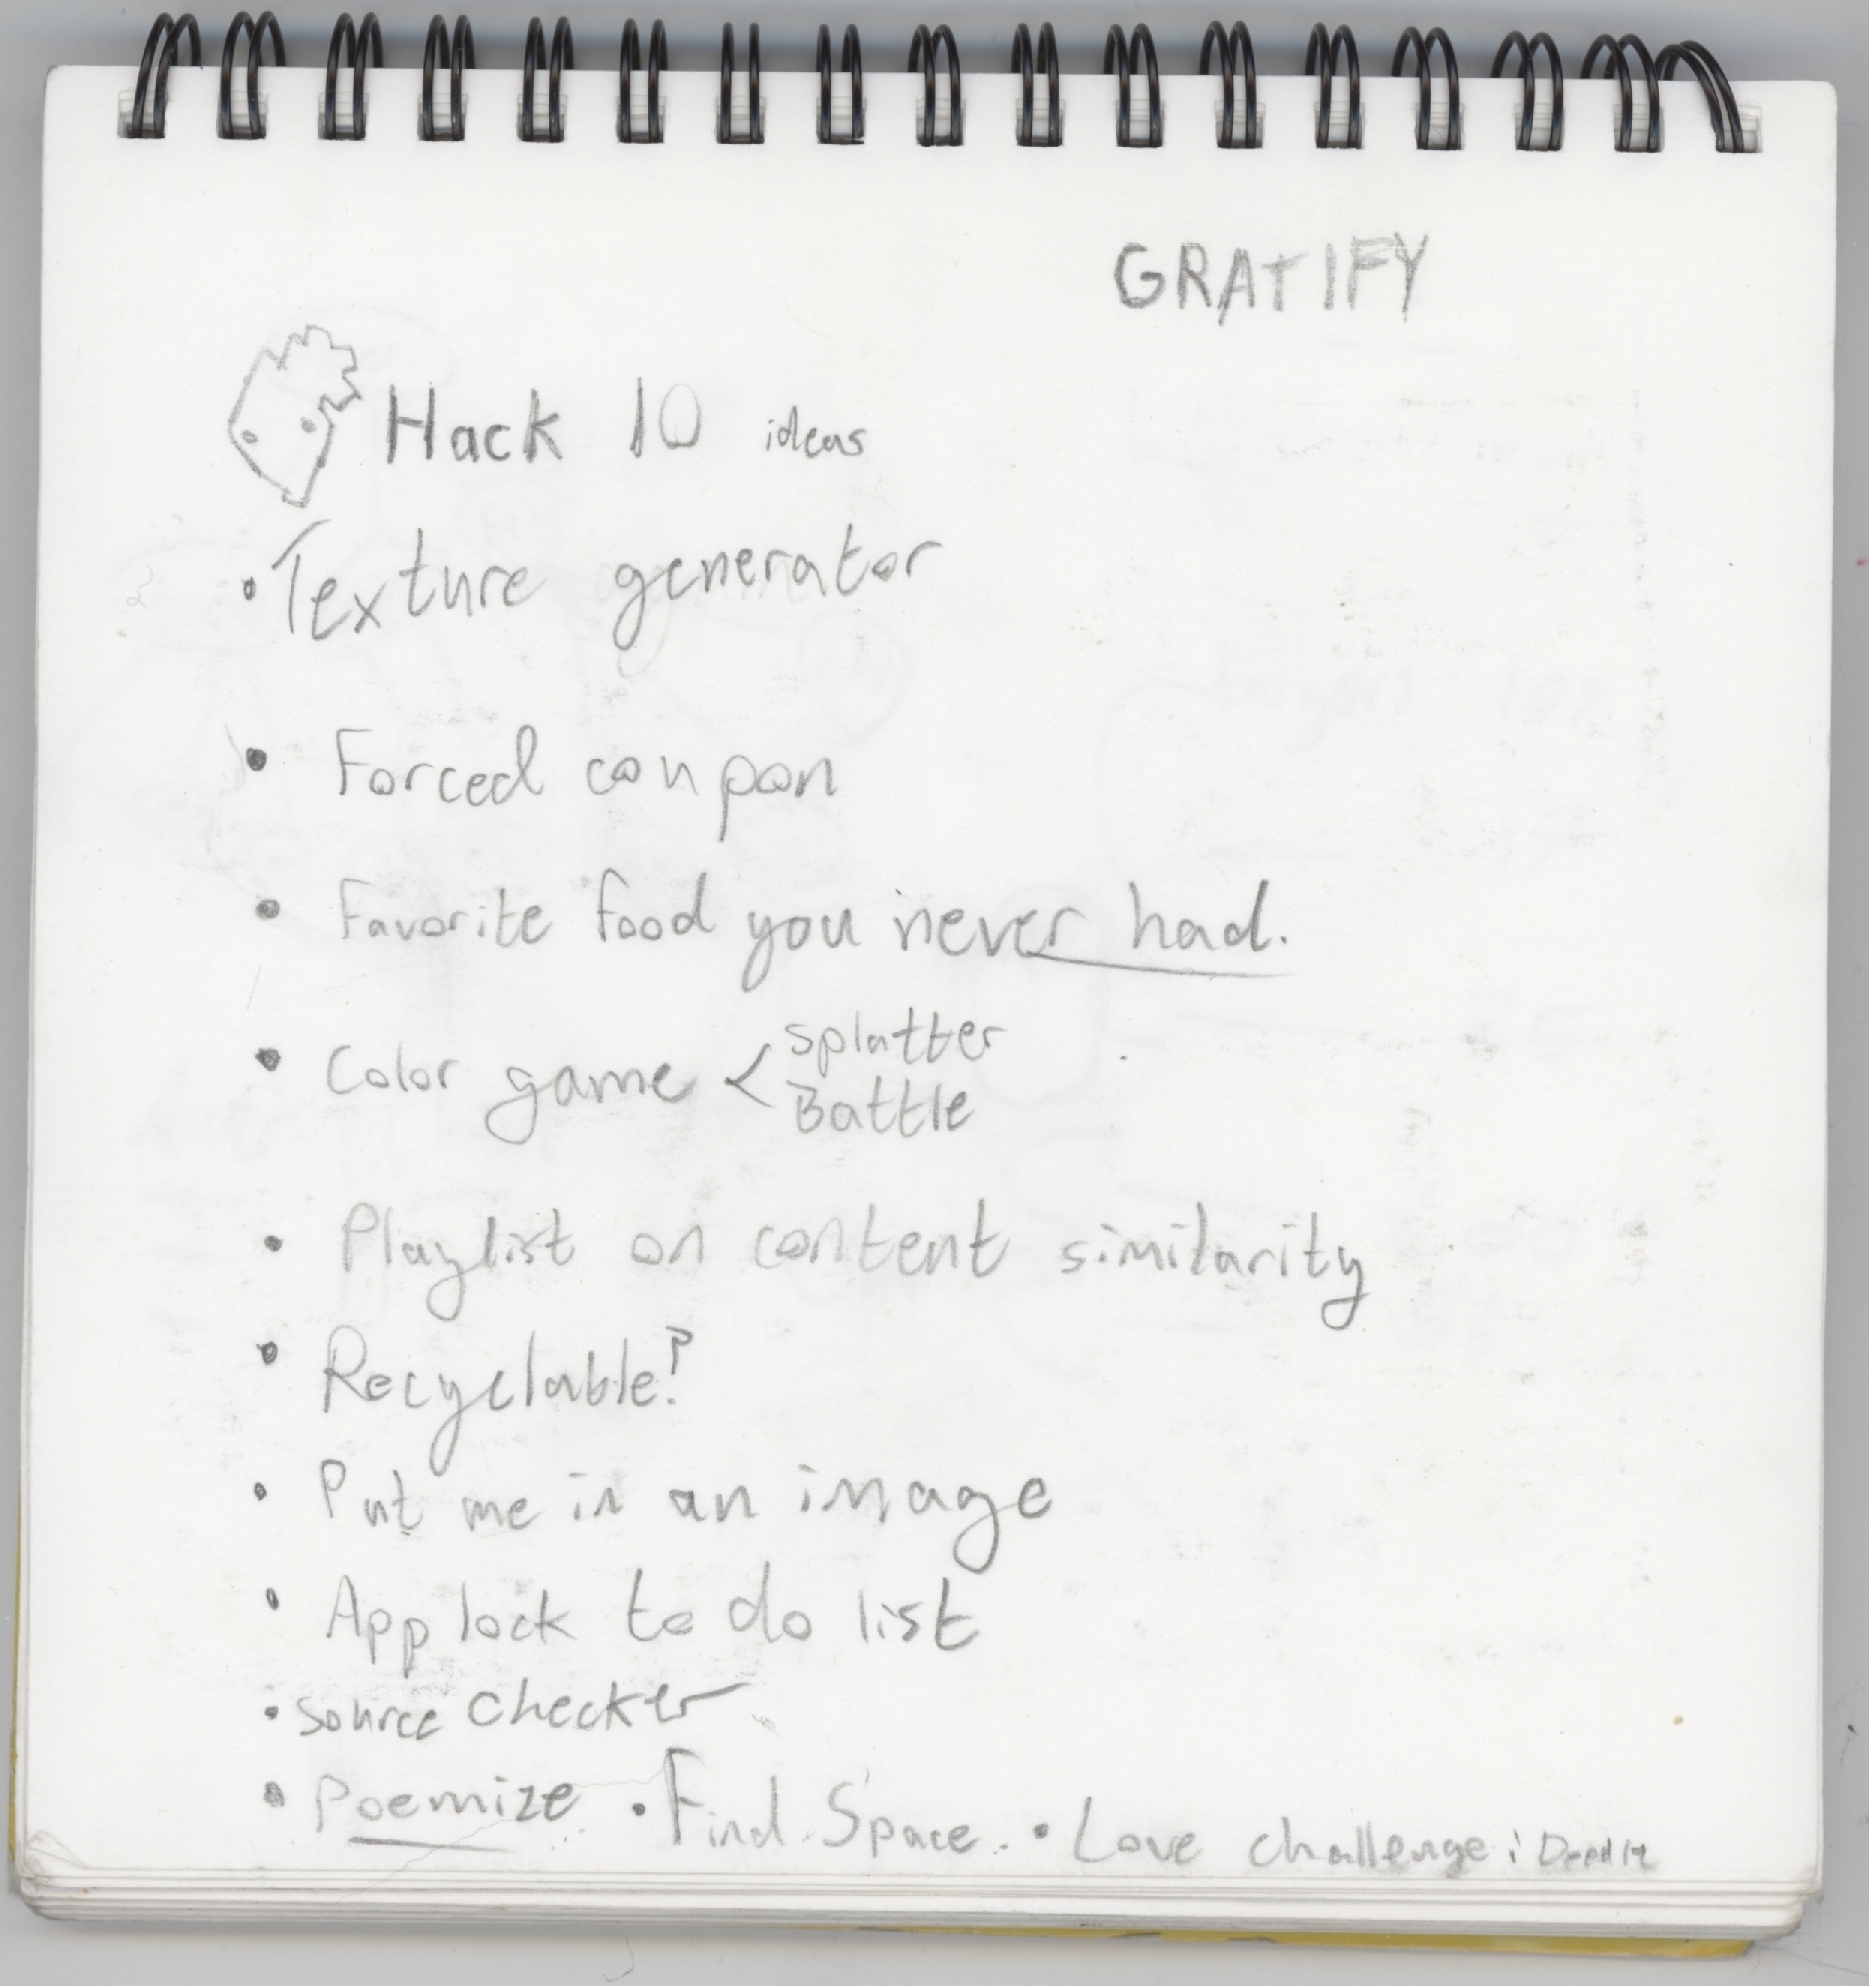 GRATIFY
Hack 10 ideas
• Texture generator
• Forced coupon
• Favorite food you never had.
• Color game < splatter
Battle
• Playlist on content similarity
• Recyclable?
• Put me in an image
• App lock to do list
• source checker
• Poemize • Find Space • Love challenge: